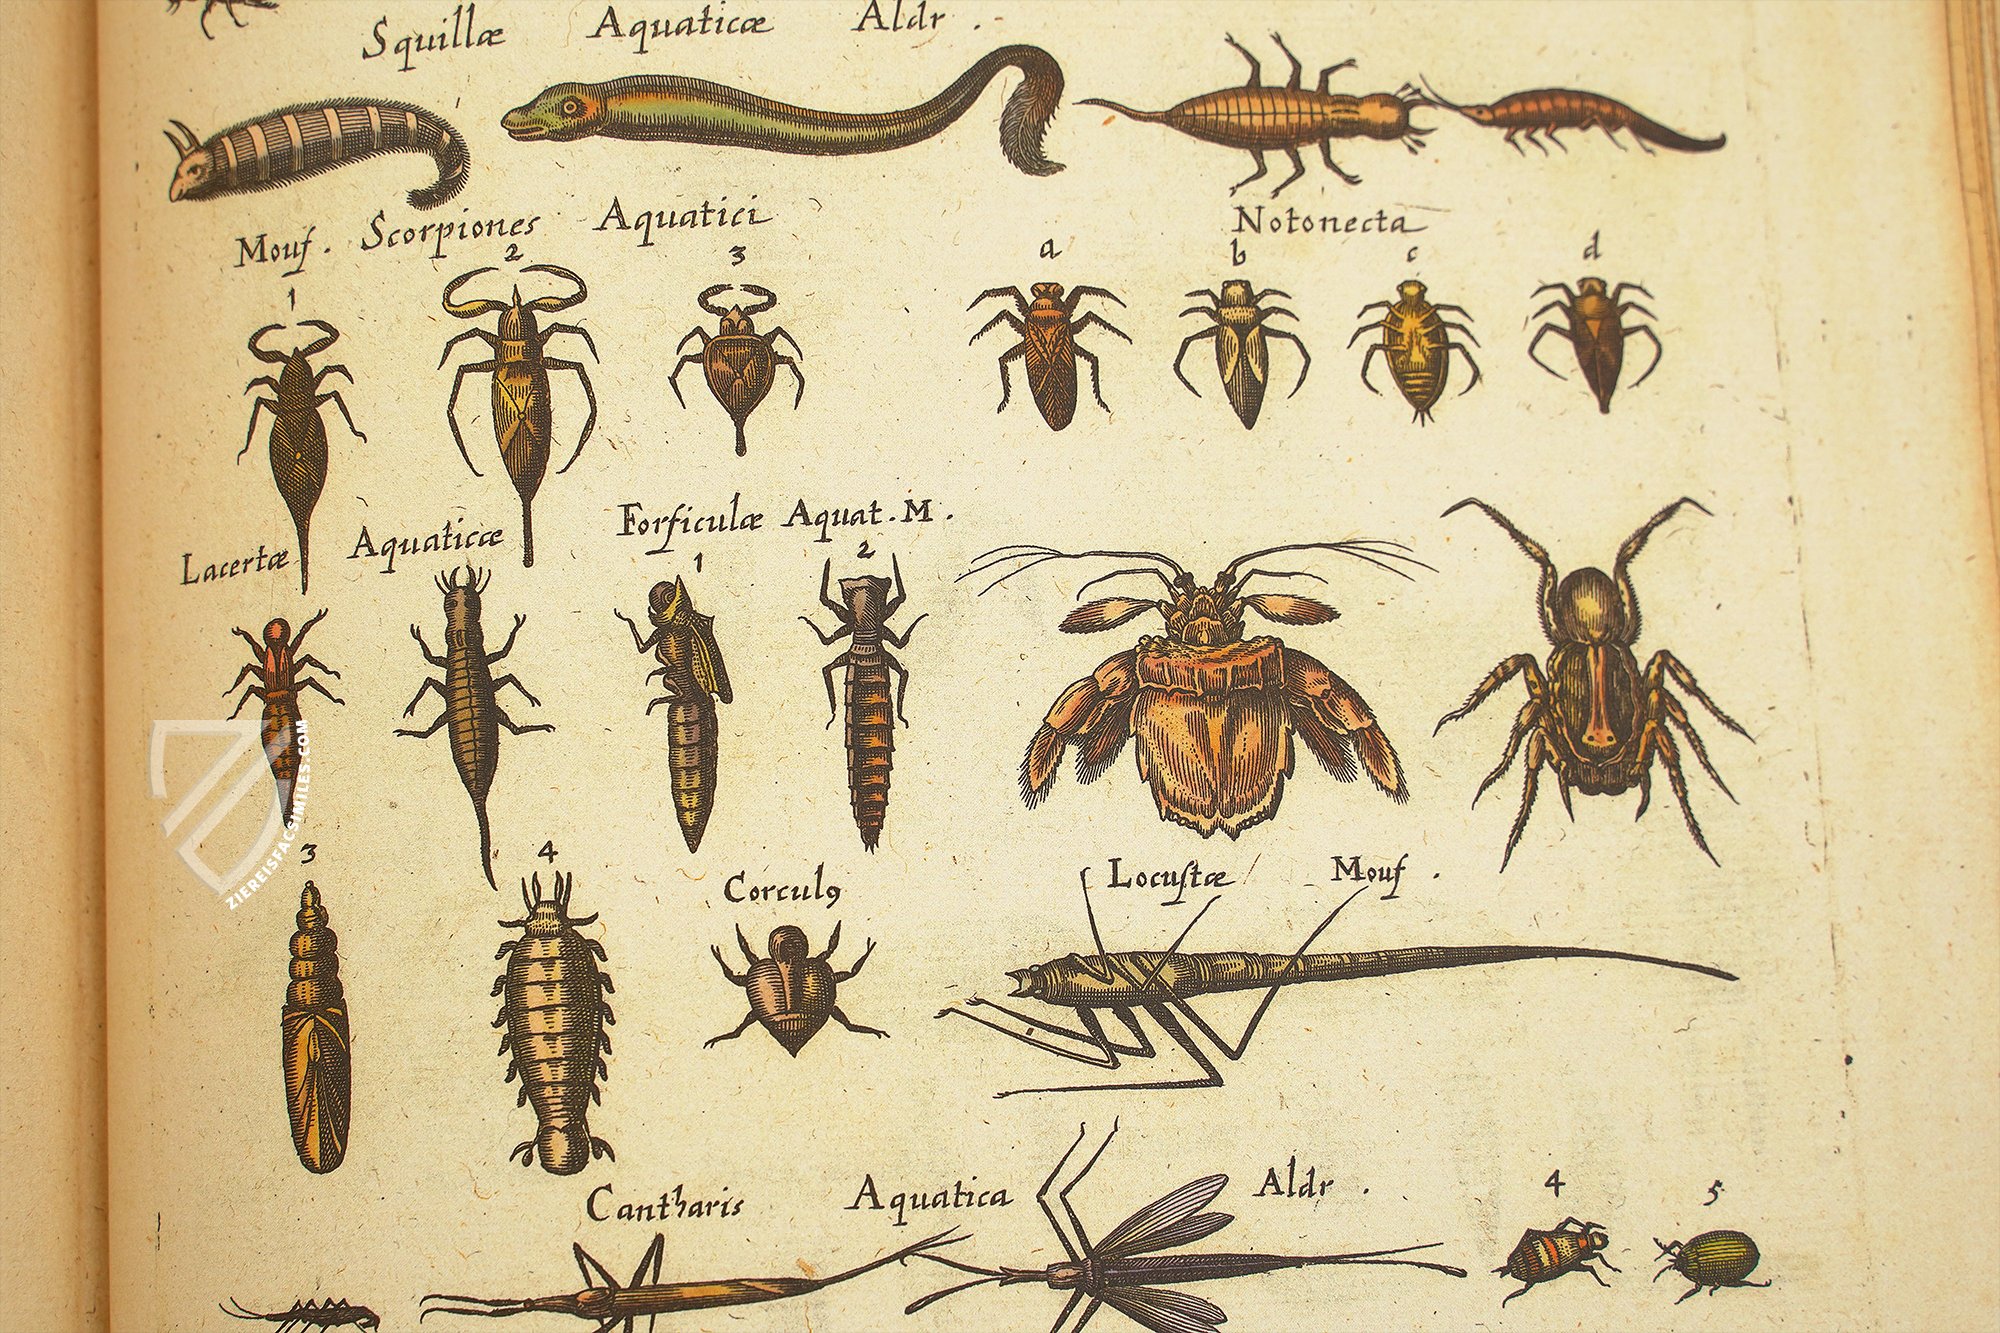 Squillæ Aquaticæ Aldr.
Mouf. Scorpiones Aquatici
Notonecta
1 2 3 a b c d
Lacertæ Aquaticæ
Forficulæ Aquat. M.
1 2
3 4
Corculꝰ
Locustæ Mouf.
Cantharis Aquatica Aldr.
4 5
ZIEREISFACSIMILES.COM